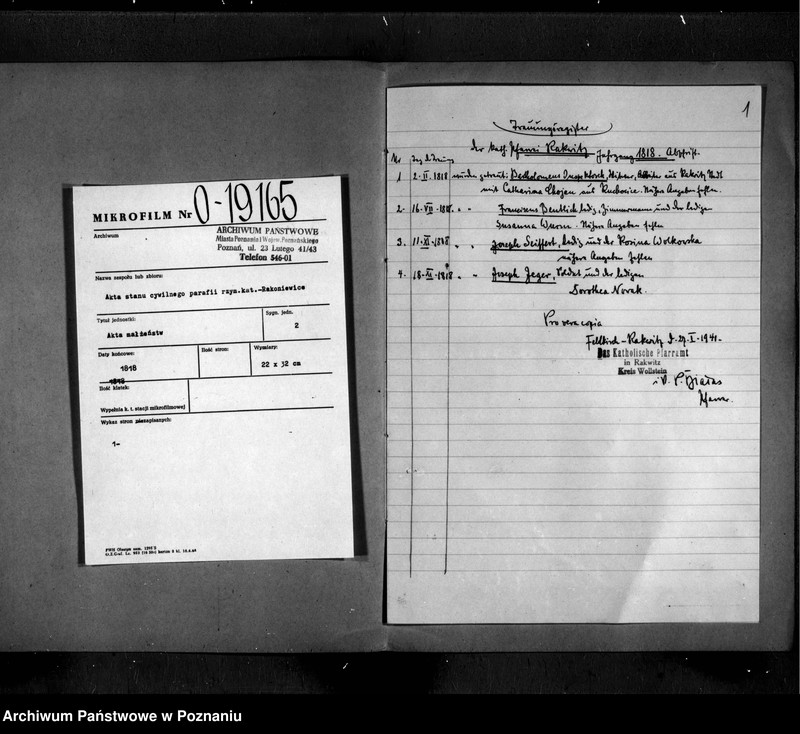 MIKROFILM Nr O-19165
Archiwum
ARCHIWUM PAŃSTWOWE
Miasta Poznania i Wojew. Poznańskiego
Poznań, ul. 23 Lutego 41/43
Telefon 546-01
Nazwa zespołu lub zbioru:
Akta stanu cywilnego parafii rzym.kat.-Rakoniewice
Tytuł jednostki:
Akta małżeństw
Sygn. jedn.
2
Daty końcowe:
1818
1818
Ilość stron:
Wymiary:
22 x 32 cm
Ilość klatek:
Wypełnia k. t. stacji mikrofilmowej
Wykaz stron niezapisanych:
1-
1
Trauungsregister
der kath. Pfarrei Rakwitz Jahrgang 1818. Abschrift.
Nr
1 2.-II. 1818 wurden getraut: Bartholomeus aus Rakwitz
mit Catharina Chojan aus Ruchocice. Nähere Angaben fehlen.
2. 16.-VII-1818. " " Franciscus Deutlich ledig, Zimmermann und der ledigen
Susanna Wurm. Nähere Angaben fehlen
3. 11.-XI.-1818 " " Joseph Seiffert, ledig und der Rosina Wolkowska
nähere Angaben fehlen
4. 18.-XI.-1818 " " Joseph Jeger, Soldat und der ledigen
Dorothea Novak.
Pro vera copia
Fellkirch-Rakwitz d. 27.I.1941.
Das Katholische Pfarramt
in Rakwitz
Kreis Wollstein
i.V. P.
Pfarrer.
Archiwum Państwowe w Poznaniu